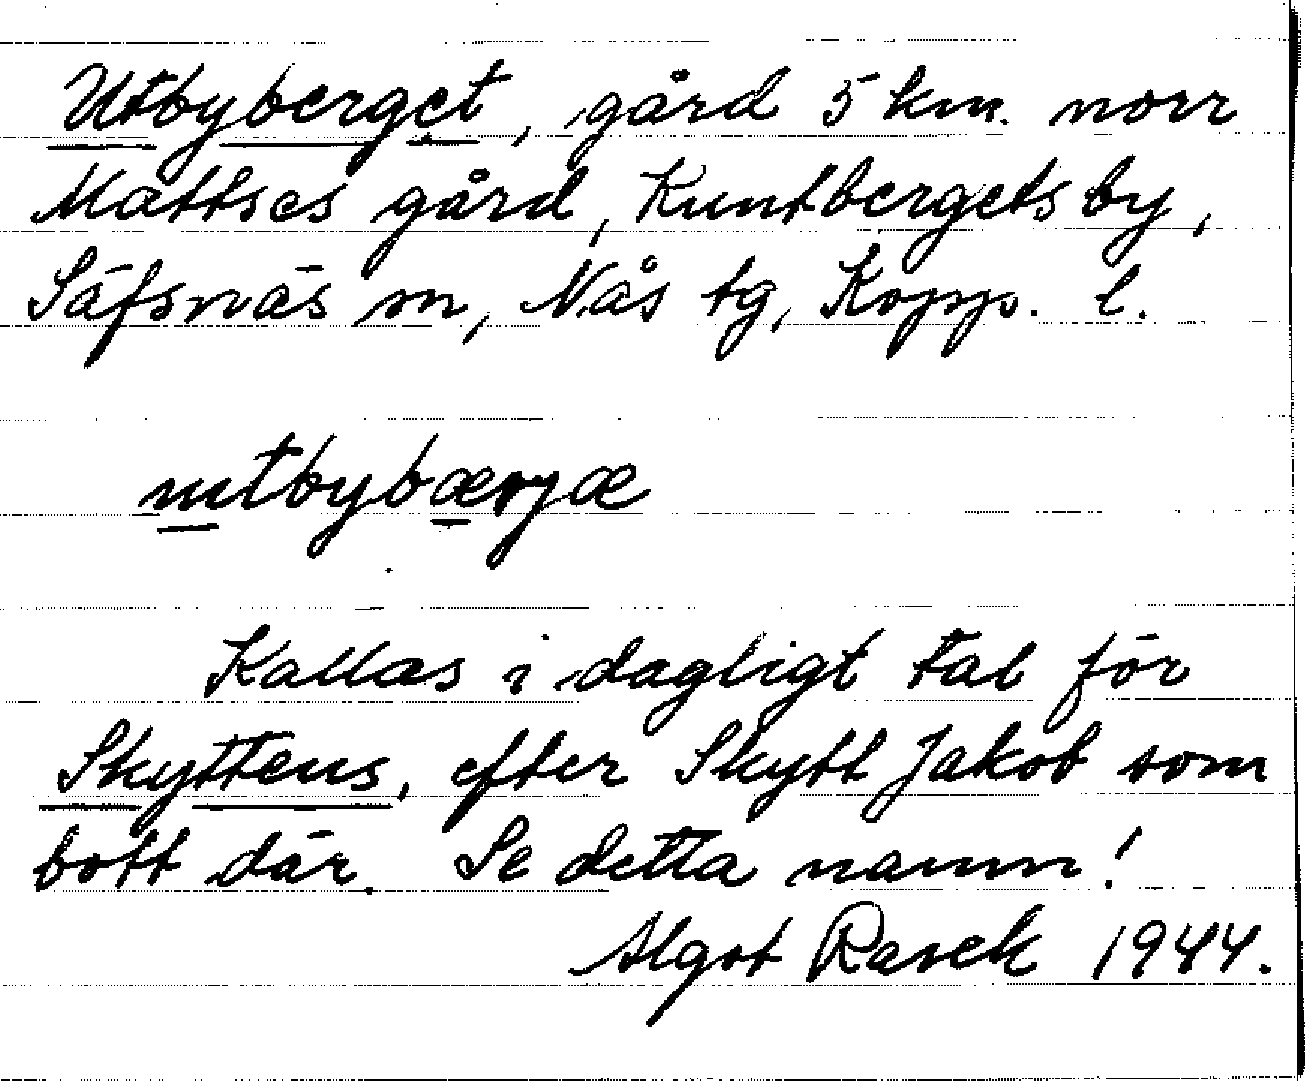 Utbyberget, gård 5 km. norr
Mattses gård, Kuntbergets by,
Säfsnäs sn, Nås tg, Kopp. l.
utbybæryæ
Kallas i dagligt tal för
Skyttens, efter Skytt Jakob som
bott där. Se detta namn!
Algot Rasck 1944.